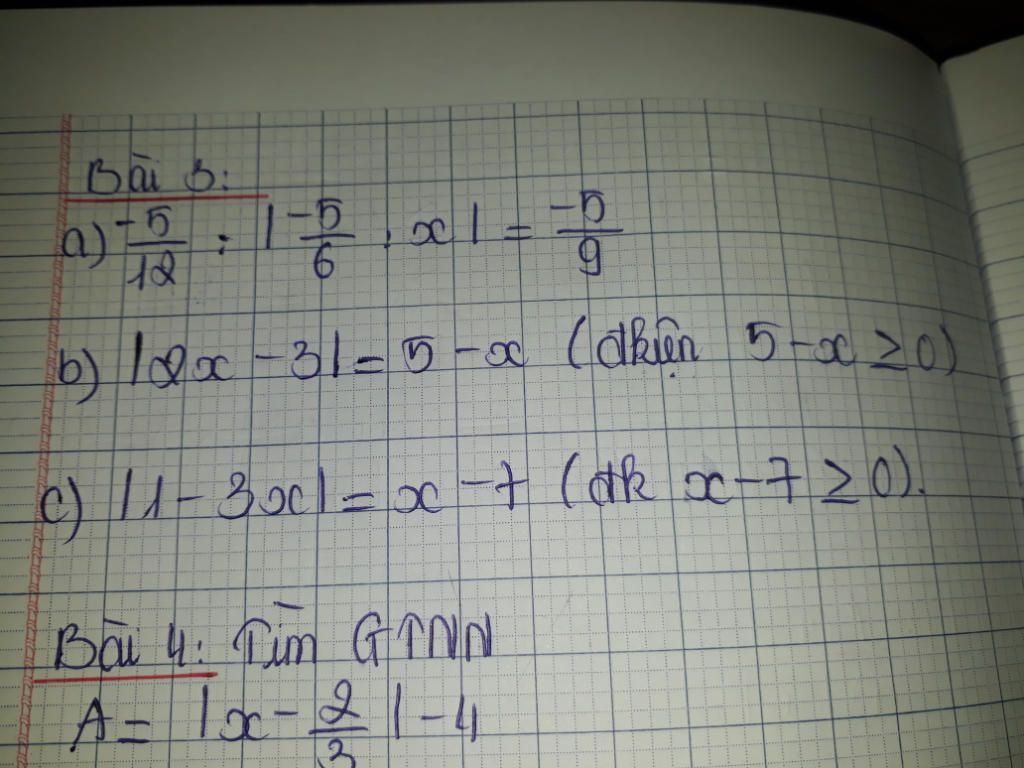 Bài 3:
a) -5/12 : |-5/6 . x| = -5/9
b) |2x - 3| = 5 - x (đkiện 5 - x ≥ 0)
c) |1 - 3x| = x - 7 (đk x - 7 ≥ 0).
Bài 4: Tìm GTNN
A = |x - 2/3| - 4